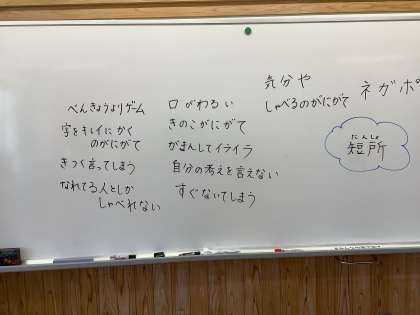 べんきょうよりゲーム
字をキレイにかく
のがにがて
きつく言ってしまう
なれてる人としか
しゃべれない
口がわるい
きのこがにがて
がまんしてイライラ
自分の考えを言えない
すぐないてしまう
気分や
しゃべるのがにがて
ネガポ
たんしょ
短所